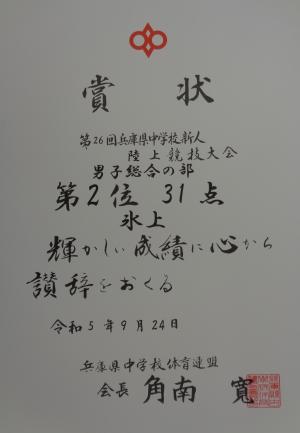 賞状
第26回兵庫県中学校新人
陸上競技大会
男子総合の部
第2位 31点
氷上
輝かしい成績に心から
讃辞をおくる
令和5年9月24日
兵庫県中学校体育連盟
会長 角南 寛